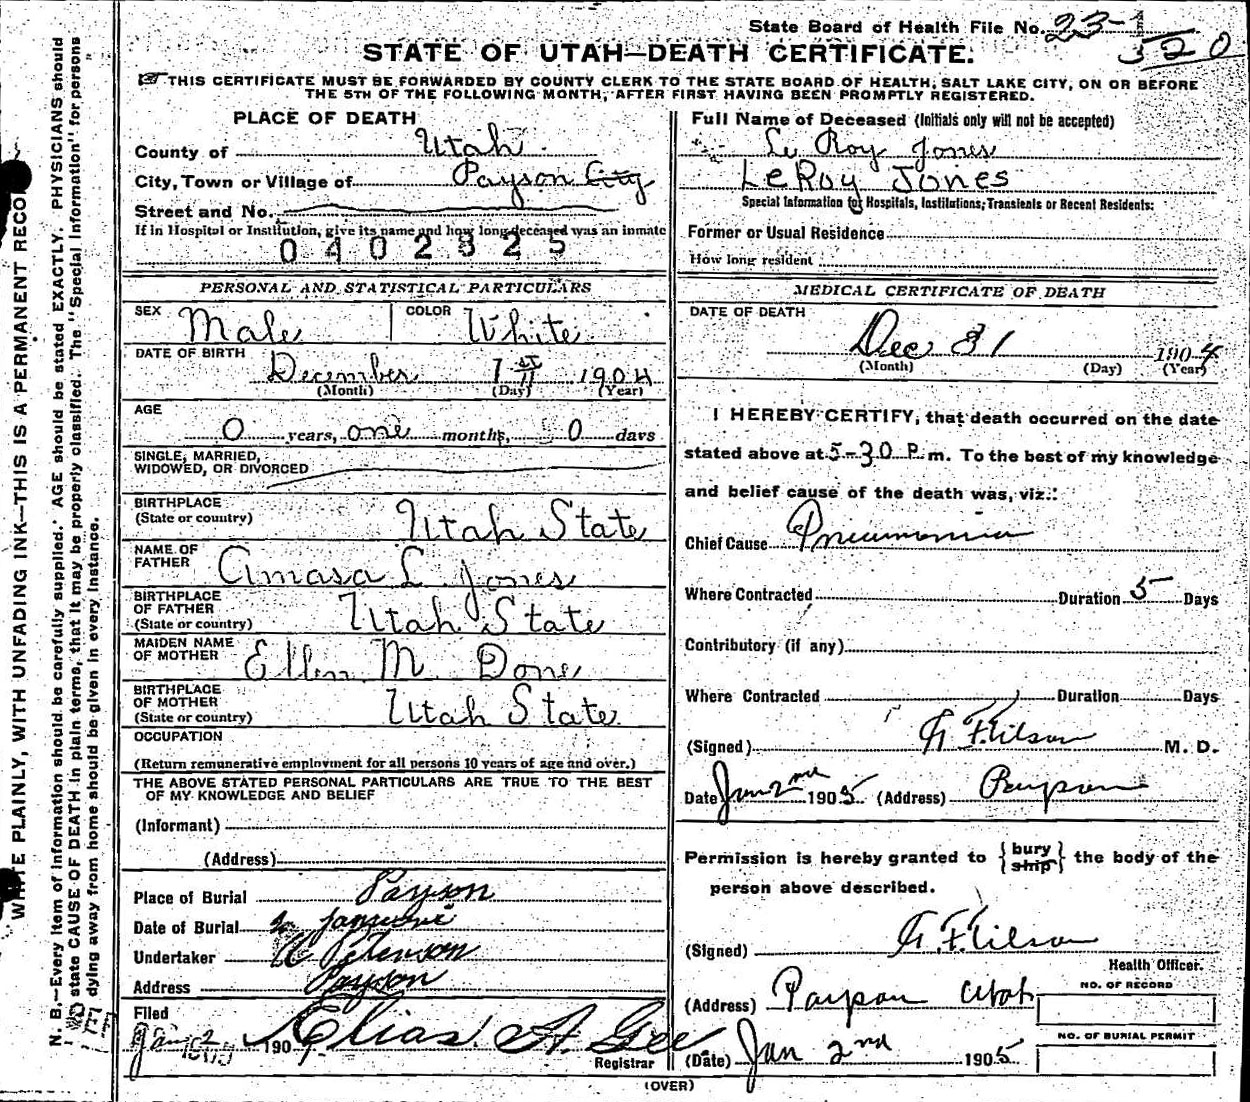 State Board of Health File No. 23-1
520
STATE OF UTAH—DEATH CERTIFICATE.
THIS CERTIFICATE MUST BE FORWARDED BY COUNTY CLERK TO THE STATE BOARD OF HEALTH, SALT LAKE CITY, ON OR BEFORE
THE 5TH OF THE FOLLOWING MONTH, AFTER FIRST HAVING BEEN PROMPTLY REGISTERED.
PLACE OF DEATH
County of Utah
City, Town or Village of Payson City
Street and No.
If in Hospital or Institution, give its name and how long deceased was an inmate
0402825
PERSONAL AND STATISTICAL PARTICULARS
SEX Male COLOR White
DATE OF BIRTH
December 1st 1904
(Month) (Day) (Year)
AGE
0 years, one months, 0 days
SINGLE, MARRIED,
WIDOWED, OR DIVORCED
BIRTHPLACE
(State or country) Utah State
NAME OF
FATHER Amasa L. Jones
BIRTHPLACE
OF FATHER
(State or country) Utah State
MAIDEN NAME
OF MOTHER Ellen M Done
BIRTHPLACE
OF MOTHER
(State or country) Utah State
OCCUPATION
(Return remunerative employment for all persons 10 years of age and over.)
THE ABOVE STATED PERSONAL PARTICULARS ARE TRUE TO THE BEST
OF MY KNOWLEDGE AND BELIEF
(Informant)
(Address)
Place of Burial Payson
Date of Burial
Undertaker Peterson
Address Payson
Filed
Jan 2 190 Elias A. Gee
Registrar
Full Name of Deceased (Initials only will not be accepted)
Le Roy Jones
LeRoy Jones
Special Information for Hospitals, Institutions, Transients or Recent Residents:
Former or Usual Residence
How long resident
MEDICAL CERTIFICATE OF DEATH
DATE OF DEATH
Dec 31 1904
(Month) (Day) (Year)
I HEREBY CERTIFY, that death occurred on the date
stated above at 5-30 P.m. To the best of my knowledge
and belief cause of the death was, viz.:
Chief Cause Pneumonia
Where Contracted Duration 5 Days
Contributory (if any)
Where Contracted Duration Days
(Signed) M. D.
Date Jan 2nd 1905 (Address) Payson
Permission is hereby granted to { bury ship } the body of the
person above described.
(Signed)
Health Officer.
(Address) Payson Utah
NO. OF RECORD
NO. OF BURIAL PERMIT
(Date) Jan 2nd 1905
(OVER)
WRITE PLAINLY, WITH UNFADING INK—THIS IS A PERMANENT RECO
N. B.—Every item of information should be carefully supplied. AGE should be stated EXACTLY. PHYSICIANS should
state CAUSE OF DEATH in plain terms, that it may be properly classified. The "Special Information" for persons
dying away from home should be given in every instance.